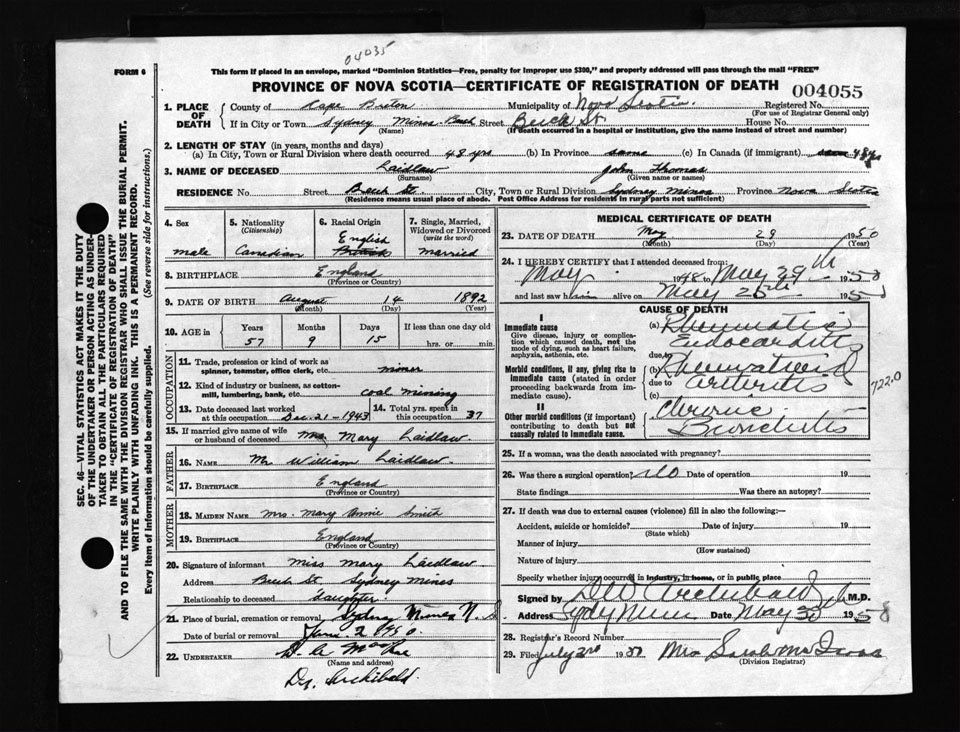 04035
FORM 6
This form if placed in an envelope, marked "Dominion Statistics—Free, penalty for improper use $300," and properly addressed will pass through the mail "FREE"
PROVINCE OF NOVA SCOTIA—CERTIFICATE OF REGISTRATION OF DEATH 004055
1. PLACE OF DEATH
County of Cape Breton Municipality of Nova Scotia Registered No.
(For use of Registrar General only)
If in City or Town Sydney Mines Street Beech St. House No.
(Name) (If death occurred in a hospital or institution, give the name instead of street and number)
2. LENGTH OF STAY (in years, months and days)
(a) In City, Town or Rural Division where death occurred 48 yrs (b) In Province same (c) In Canada (if immigrant) 48 yrs
3. NAME OF DECEASED Laidlaw John Thomas
(Surname) (Given name or names)
RESIDENCE No. Street Beech St. City, Town or Rural Division Sydney Mines Province Nova Scotia
(Residence means usual place of abode. Post Office Address for residents in rural parts not sufficient)
4. Sex
male
5. Nationality
(Citizenship)
Canadian
6. Racial Origin
English
British
7. Single, Married, Widowed or Divorced
(write the word)
married
8. BIRTHPLACE England
(Province or Country)
9. DATE OF BIRTH August 14 1892
(Month) (Day) (Year)
10. AGE in Years Months Days If less than one day old
57 9 15 hrs. or min.
OCCUPATION
11. Trade, profession or kind of work as
spinner, teamster, office clerk, etc. miner
12. Kind of industry or business, as cotton-
mill, lumbering, bank, etc. coal mining
13. Date deceased last worked
at this occupation Dec. 21 - 1943
14. Total yrs. spent in
this occupation 37
15. If married give name of wife
or husband of deceased Mrs. Mary Laidlaw
FATHER
16. NAME Mr William Laidlaw
17. BIRTHPLACE England
(Province or Country)
MOTHER
18. MAIDEN NAME Mrs. Mary Annie Smith
19. BIRTHPLACE England
(Province or Country)
20. Signature of informant Miss Mary Laidlaw
Address Beech St. Sydney Mines
Relationship to deceased Daughter
21. Place of burial, cremation or removal Sydney Mines N. S
Date of burial or removal June 2 1950
22. UNDERTAKER
(Name and address)
Dr. Archibald
MEDICAL CERTIFICATE OF DEATH
23. DATE OF DEATH May 29 1950
(Month) (Day) (Year)
24. I HEREBY CERTIFY that I attended deceased from:
May 1948 to May 29th 1950
and last saw him alive on May 25th 1950
CAUSE OF DEATH
I
Immediate cause
Give disease, injury or complication which caused death, not the mode of dying, such as heart failure, asphyxia, asthenia, etc.
(a) Rheumatic
Endocarditis
due to
Morbid conditions, if any, giving rise to immediate cause (stated in order proceeding backwards from immediate cause).
(b) Rheumatoid
due to Arthritis
(c)
722.0
II
Other morbid conditions (if important) contributing to death but not causally related to immediate cause.
Chronic
Bronchitis
25. If a woman, was the death associated with pregnancy?
26. Was there a surgical operation? No Date of operation 19
State findings Was there an autopsy?
27. If death was due to external causes (violence) fill in also the following:—
Accident, suicide or homicide? Date of injury 19
(State which)
Manner of injury
(How sustained)
Nature of injury
Specify whether injury occurred in industry, in home, or in public place
Signed by Archibald M.D.
Address Sydney Mines Date May 30 1950
28. Registrar's Record Number
29. Filed July 3rd 19 Mrs Sarah
(Division Registrar)
SEC. 46—VITAL STATISTICS ACT MAKES IT THE DUTY
OF THE UNDERTAKER OR PERSON ACTING AS UNDER-
TAKER TO OBTAIN ALL THE PARTICULARS REQUIRED
IN THE "CERTIFICATE OF REGISTRATION OF DEATH"
AND TO FILE THE SAME WITH THE DIVISION REGISTRAR WHO SHALL ISSUE THE BURIAL PERMIT.
WRITE PLAINLY WITH UNFADING INK. THIS IS A PERMANENT RECORD.
Every item of information should be carefully supplied. (See reverse side for instructions.)